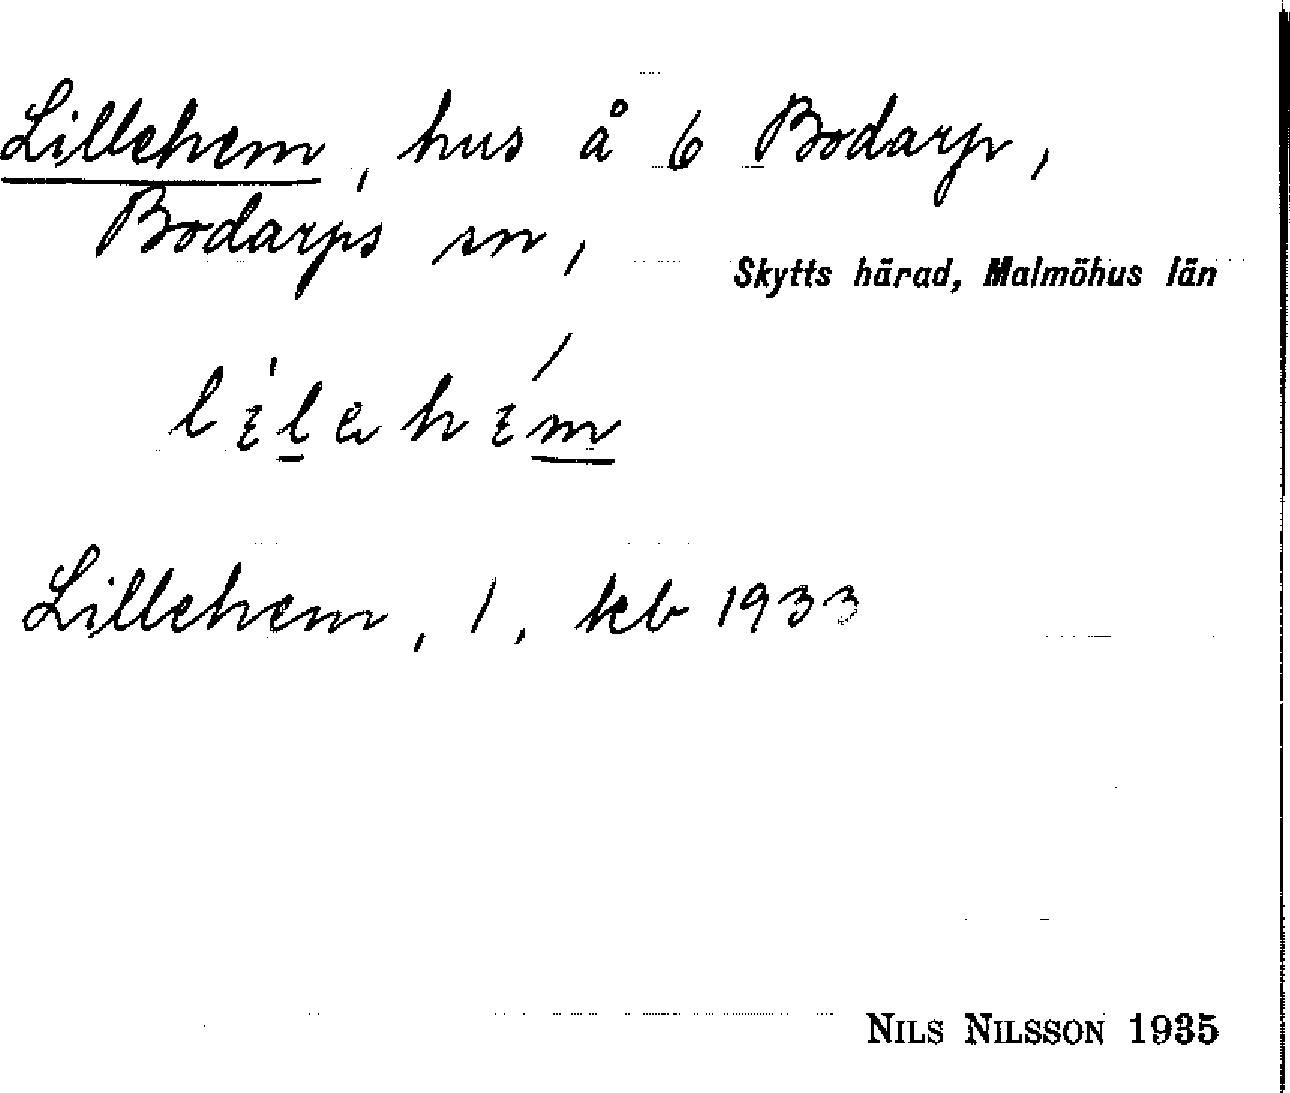 Lillehem, hus å 6 Bodarp,
Bodarps sn, Skytts härad, Malmöhus län
Lillehem, 1, kb 1933
NILS NILSSON 1935